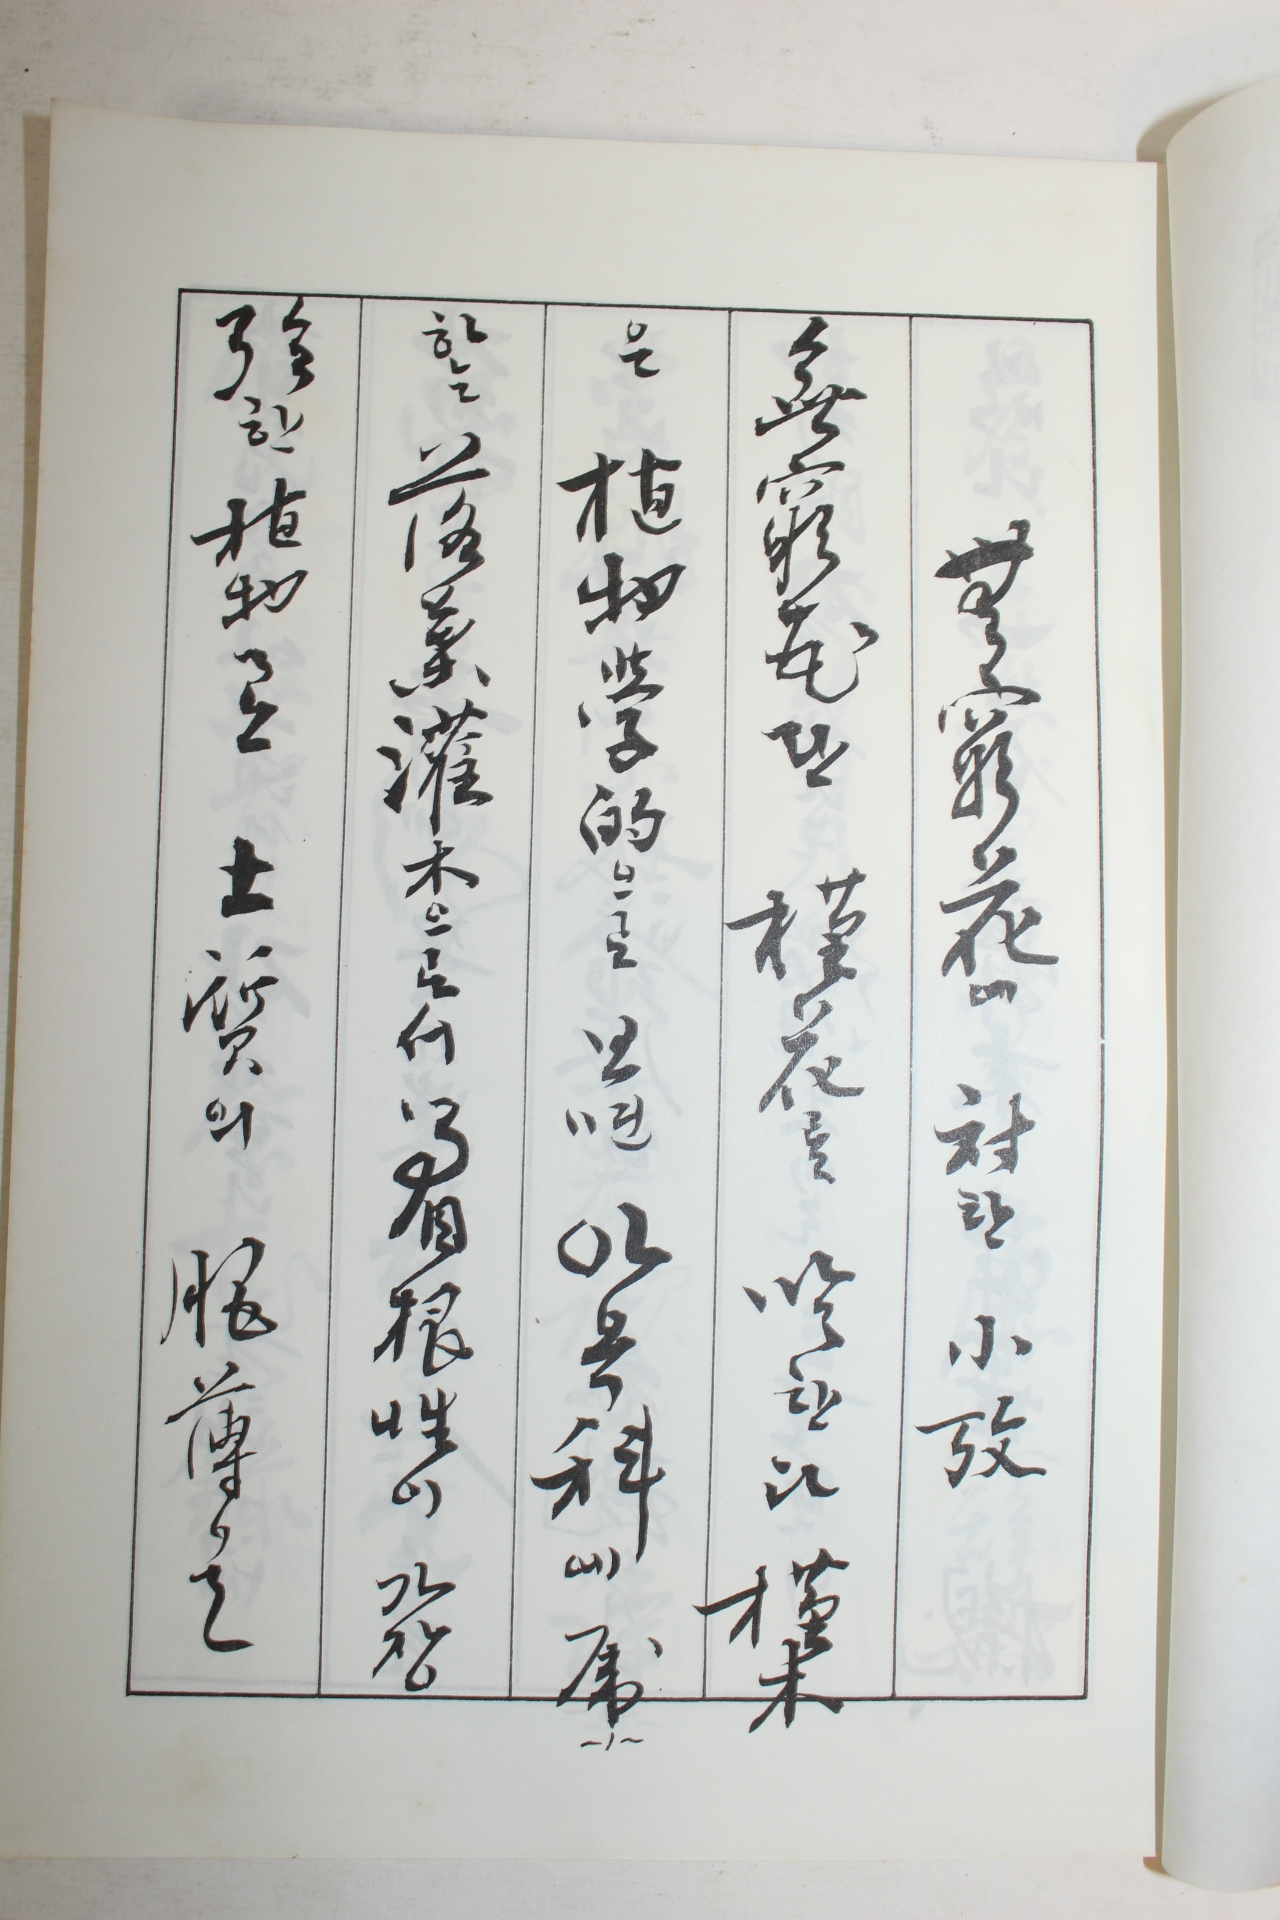 無窮花에 対한 小攷
無窮花란 槿花를 말한다 槿木
은 植物学的으로 보면 아욱科에 属
하는 落葉灌木으로서 宿根性이 가장
強한 植物로 土質의 肥薄은
~1~